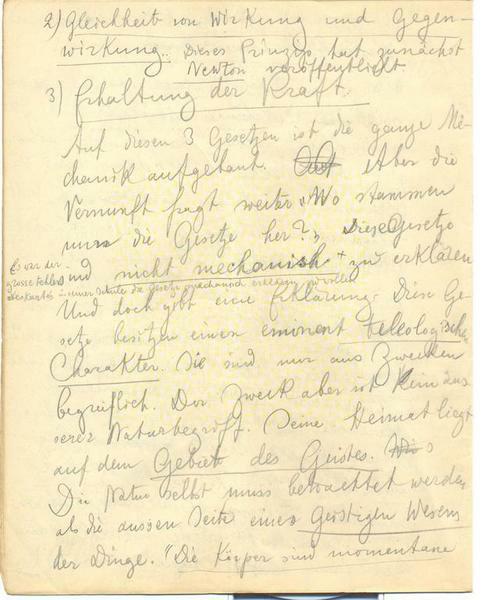 2) Gleichheit von Wirkung und Gegen-
wirkung. Dieses Prinzip hat zunächst
Newton veröffentlicht
3) Erhaltung der Kraft.
Auf diesen 3 Gesetzen ist die ganze Me-
chanik aufgebaut. Aber die
Vernunft fragt weiter: „Wo stammen
nun die Gesetze her?" Diese Gesetze
sind nicht mechanisch + zu erklären
Es war der
grosse Fehler
Descartes in seiner Schule die Gesetze mechanisch erklären zu wollen
Und doch gibt es eine Erklärung. Diese Ge-
setze besitzen einen eminent teleologischen
Charakter. Sie sind nur aus Zwecken
begreiflich. Der Zweck aber ist kein äus-
serer Naturbegriff. Seine Heimat liegt
auf dem Gebiete des Geistes.
Die Natur selbst muss betrachtet werden
als die aussen Seite eines Geistigen Wesens
der Dinge. "Die Körper sind momentane